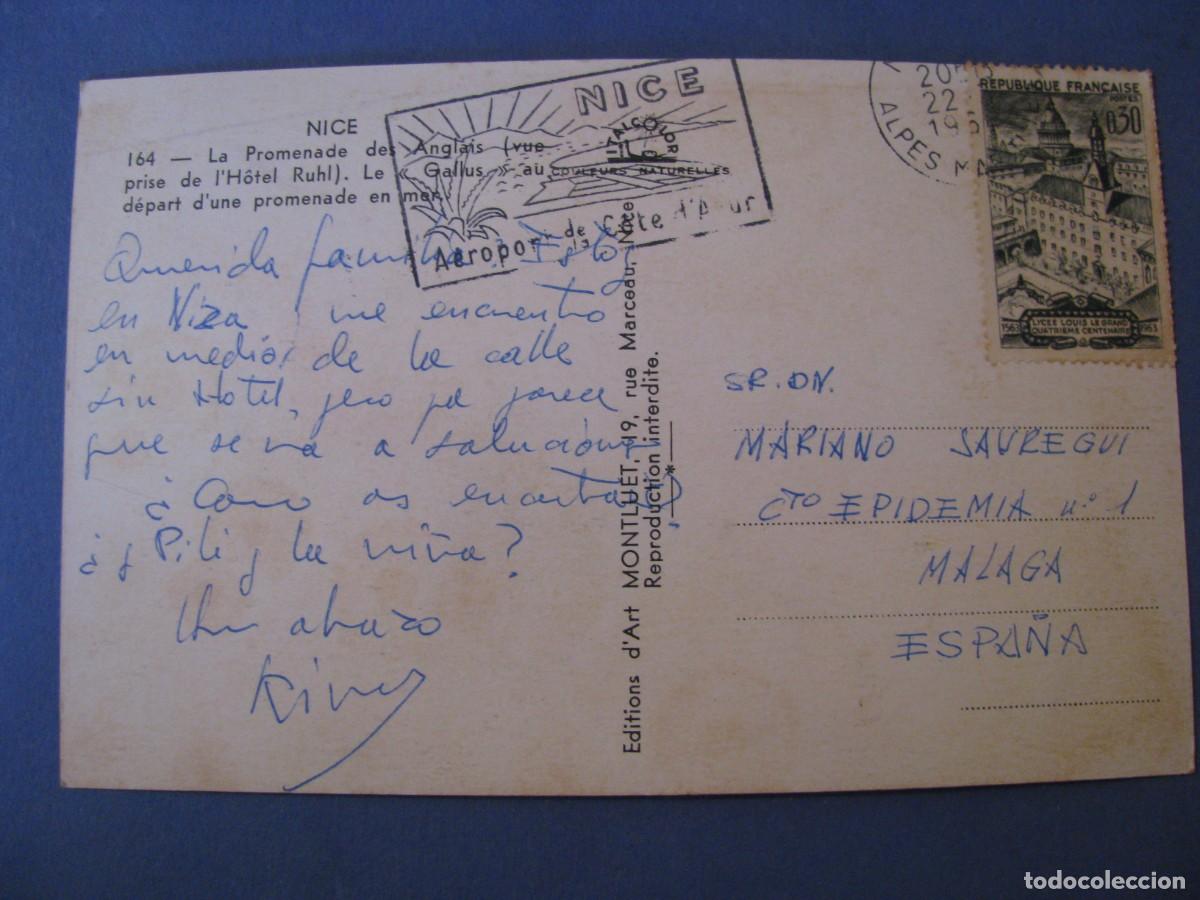 NICE
164 — La Promenade des Anglais (vue
prise de l'Hôtel Ruhl). Le « Gallus » au
départ d'une promenade en mer.
NICE
ITALCOLOR
COULEURS NATURELLES
Aéroport de la Côte d'Azur
Querida familia: Estoy
en Niza, me encuentro
en medio de la calle
sin Hotel, pero ya parece
que se va a solucionar
¿Como os encontrais?
¿y Pili y la niña?
Un abrazo
Editions d'Art MONTLUET, 19, rue Marceau, Nice
Reproduction interdite.
22
ALPES
REPUBLIQUE FRANÇAISE
POSTES
0,30
1563 LYCEE LOUIS LE GRAND 1963
QUATRIEME CENTENAIRE
SR. DN.
MARIANO SAUREGUI
CTO EPIDEMIA nº 1
MALAGA
ESPAÑA
todocoleccion